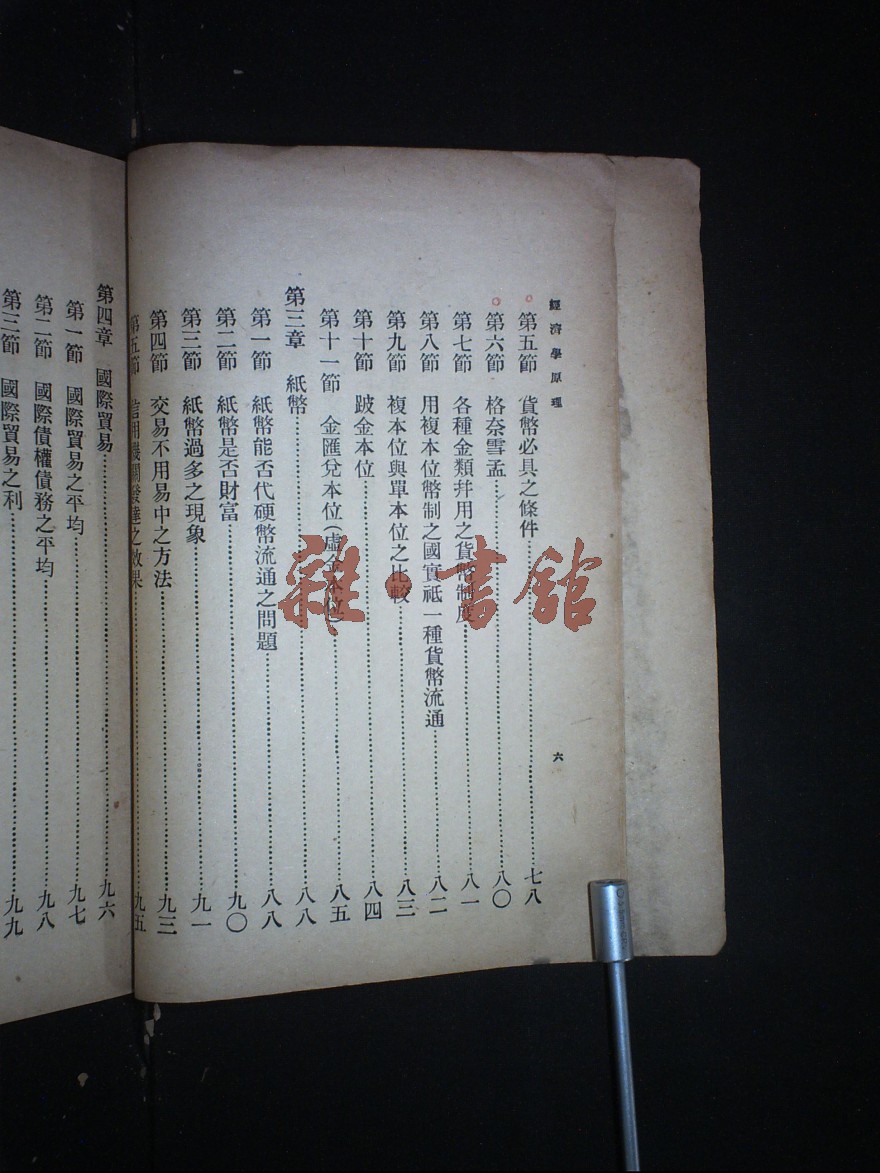 經濟學原理
六
第五節 貨幣必具之條件 七八
第六節 格奈雪孟 八〇
第七節 各種金類幷用之貨幣制度 八一
第八節 用複本位幣制之國實祗一種貨幣流通 八二
第九節 複本位與單本位之比較 八三
第十節 跛金本位 八四
第十一節 金匯兌本位(虛金本位) 八五
第三章 紙幣 八八
第一節 紙幣能否代硬幣流通之問題 八八
第二節 紙幣是否財富 九〇
第三節 紙幣過多之現象 九一
第四節 交易不用易中之方法 九三
第五節 信用機關發達之效果 九五
第四章 國際貿易 九六
第一節 國際貿易之平均 九七
第二節 國際債權債務之平均 九八
第三節 國際貿易之利 九九
雜·書館